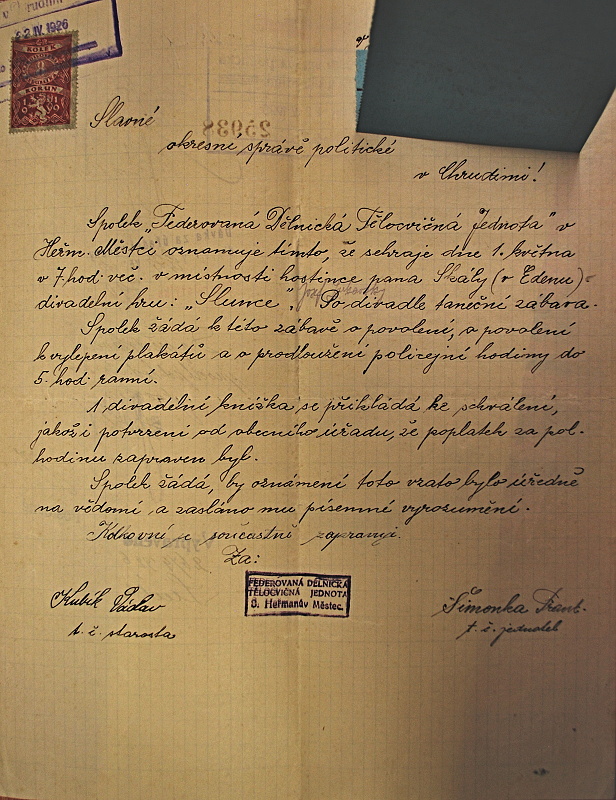 2 IV. 1926
KOLEK
KORUN
25938
Slavné
okresní správě politické
v Chrudimi!
Spolek „Federovaná Dělnická Tělocvičná Jednota" v
Heřm. Městci oznamuje tímto, že sehraje dne 1. května
v 7 hod. več. v místnosti hostince pana Skály (v Edenu)
divadelní hru: „Slunce". Po divadle taneční zábava.
Spolek žádá k této zábavě o povolení, o povolení
k vylepení plakátů a o prodloužení policejní hodiny do
5. hod. ranní.
1 divadelní knížka se přikládá ke schválení,
jakož i potvrzení od obecního úřadu, že poplatek za pol.
hodinu zapraven byl.
Spolek žádá, by oznámení toto vzato bylo úředně
na vědomí a zasláno mu písemné vyrozumění.
součastně
Za:
FEDEROVANÁ DĚLNICKÁ
TĚLOCVIČNÁ JEDNOTA
Heřmanův Městec.
Kubík Václav
t. č. starosta
Šimonka Frant.
t. č. jednatel